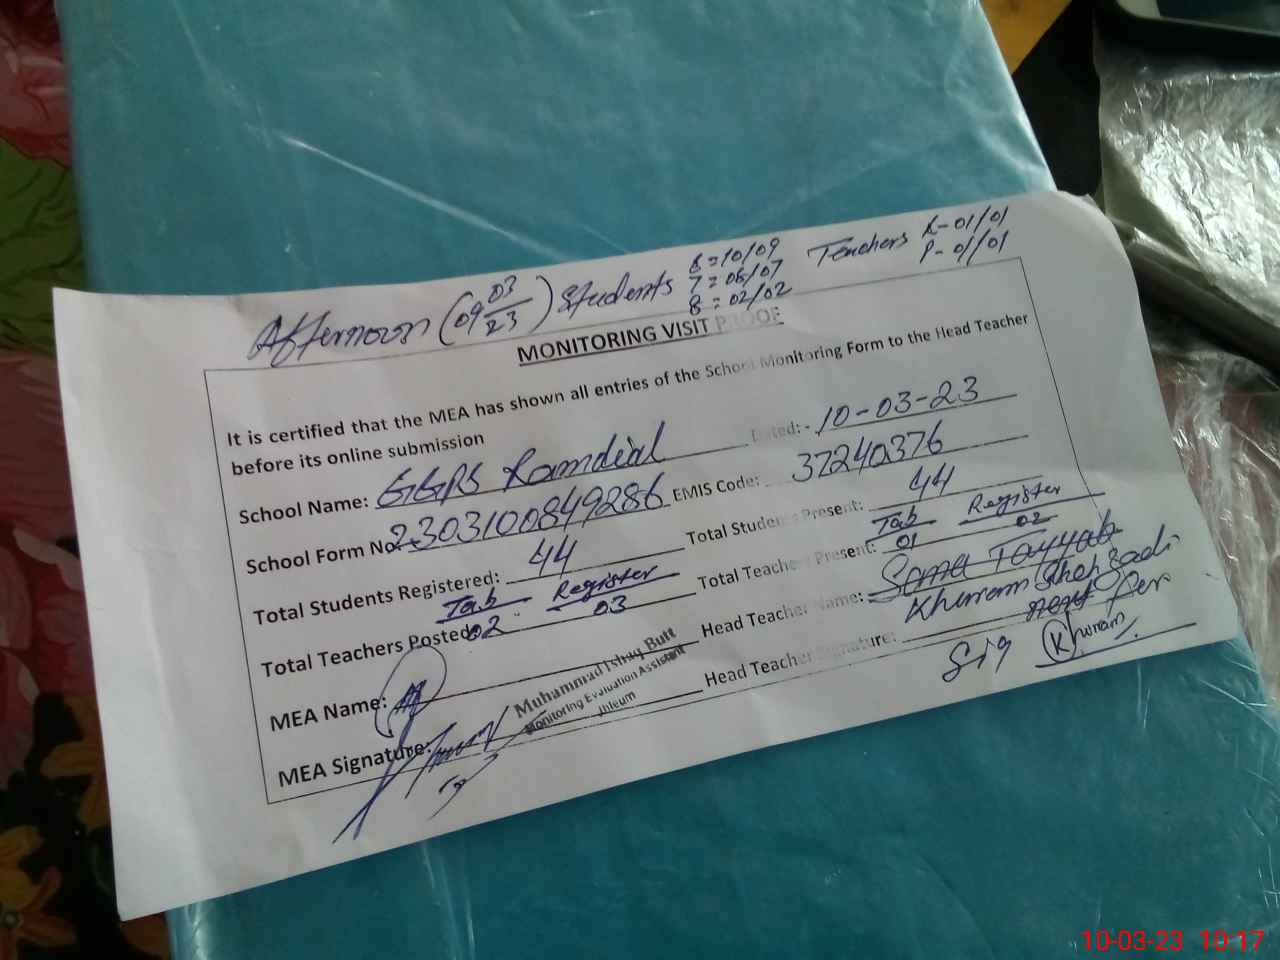 Afternoon (09 03/23) Students 6 = 10/09 Teachers R- 01/01
7 = 08/07 P- 01/01
8 = 02/02
MONITORING VISIT PROOF
It is certified that the MEA has shown all entries of the School Monitoring Form to the Head Teacher
before its online submission
Dated:- 10-03-23
School Name: GGPS Ramdial
EMIS Code: 37240376
School Form No. 2303100849286
Total Students Present: 44
Total Students Registered: 44
Tab Register
Total Teachers Present: 01 02
Tab Register
Total Teachers Posted: 02 03
Head Teacher Name: Sama Tayyab
Khurram Shehzadi
MEA Name:
Muhammad Ishaq Butt
Monitoring Evaluation Assistant
Jhleum
Head Teacher Signature:
Sig Khuram
MEA Signature:
10-03-23 10:17